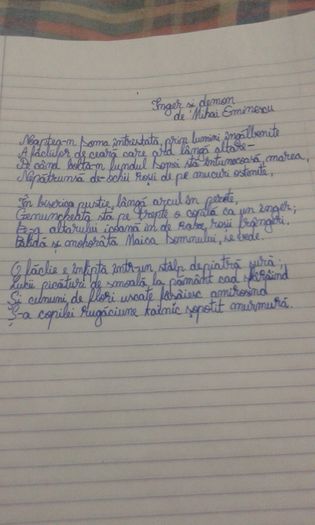 Inger si demon
de Mihai Eminescu
Noaptea-n Doma întristată, prin lumini îngălbenite
A făcliilor de ceară care ard lângă altare -
Pe când bolta-n fundul Domei stă întunecoasă, marea,
Nepătrunsă de ochii roși de pe mucuri ostenite,
În biserica pustie, lângă arcul în perete,
Genunchiată stă pe trepte o copilă ca un înger;
Pe-a altarului icoană în de raze, roșii frângeri,
Palidă și mohorâtă Maica Domnului, se vede.
O făclie e înfiptă într-un stâlp de piatră sură;
Lucii picături de smoală la pământ cad sfârâind
Și cununi de flori uscate fâsâiesc amirosind
Ș-a copilei rugăciune tainic șopotit murmură.